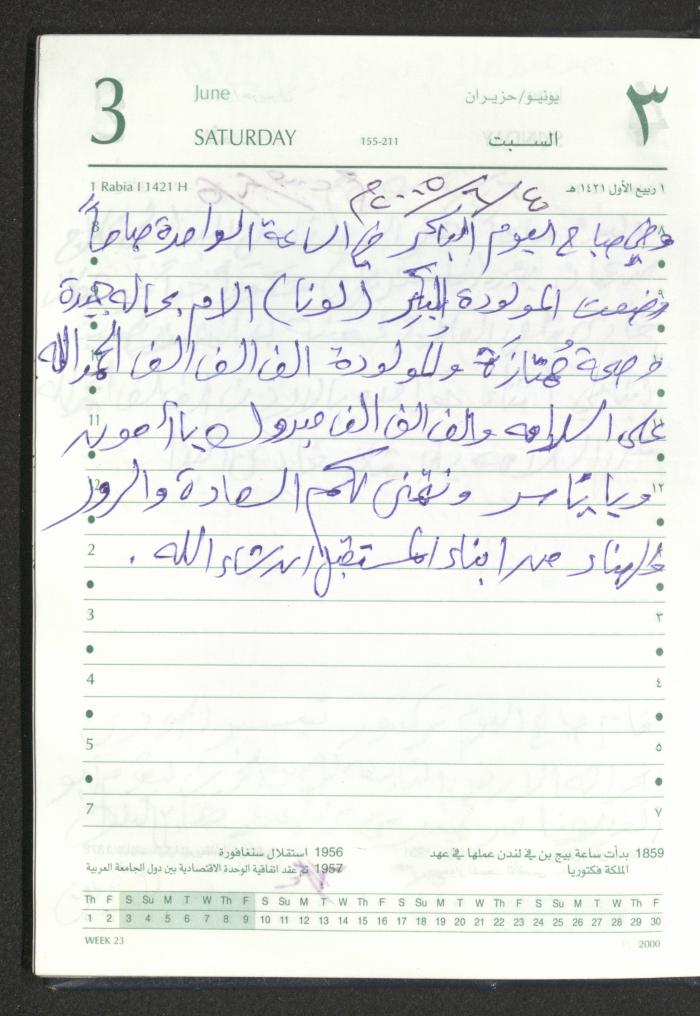 3
June
SATURDAY
155-211
يونيو/حزيران
السبت
٣
1 Rabia I 1421 H
١ ربيع الأول ١٤٢١ هـ
وفي صباح اليوم الباكر في الساعة الواحدة صباحاً
وضعت المولودة البِكِر (لونا) الام بحاله جيدة
وصحة مُمتازَة وللمولودة الف الف الف الحمدالله
على السلامه والف الف الف مبروك يا
ويا ونتمنى لكم السعادة والسرور
والهناء من ابناء المستقبل ان شاء الله .
11 ١١
12 ١٢
2
3 ٣
4 ٤
5 ٥
7 ٧
1859 بدأت ساعة بيج بن في لندن عملها في عهد الملكة فكتوريا
1956 استقلال سنغافورة
1957 تم عقد اتفاقية الوحدة الاقتصادية بين دول الجامعة العربية
Th F S Su M T W Th F S Su M T W Th F S Su M T W Th F S Su M T W Th F
1 2 3 4 5 6 7 8 9 10 11 12 13 14 15 16 17 18 19 20 21 22 23 24 25 26 27 28 29 30
WEEK 23
2000